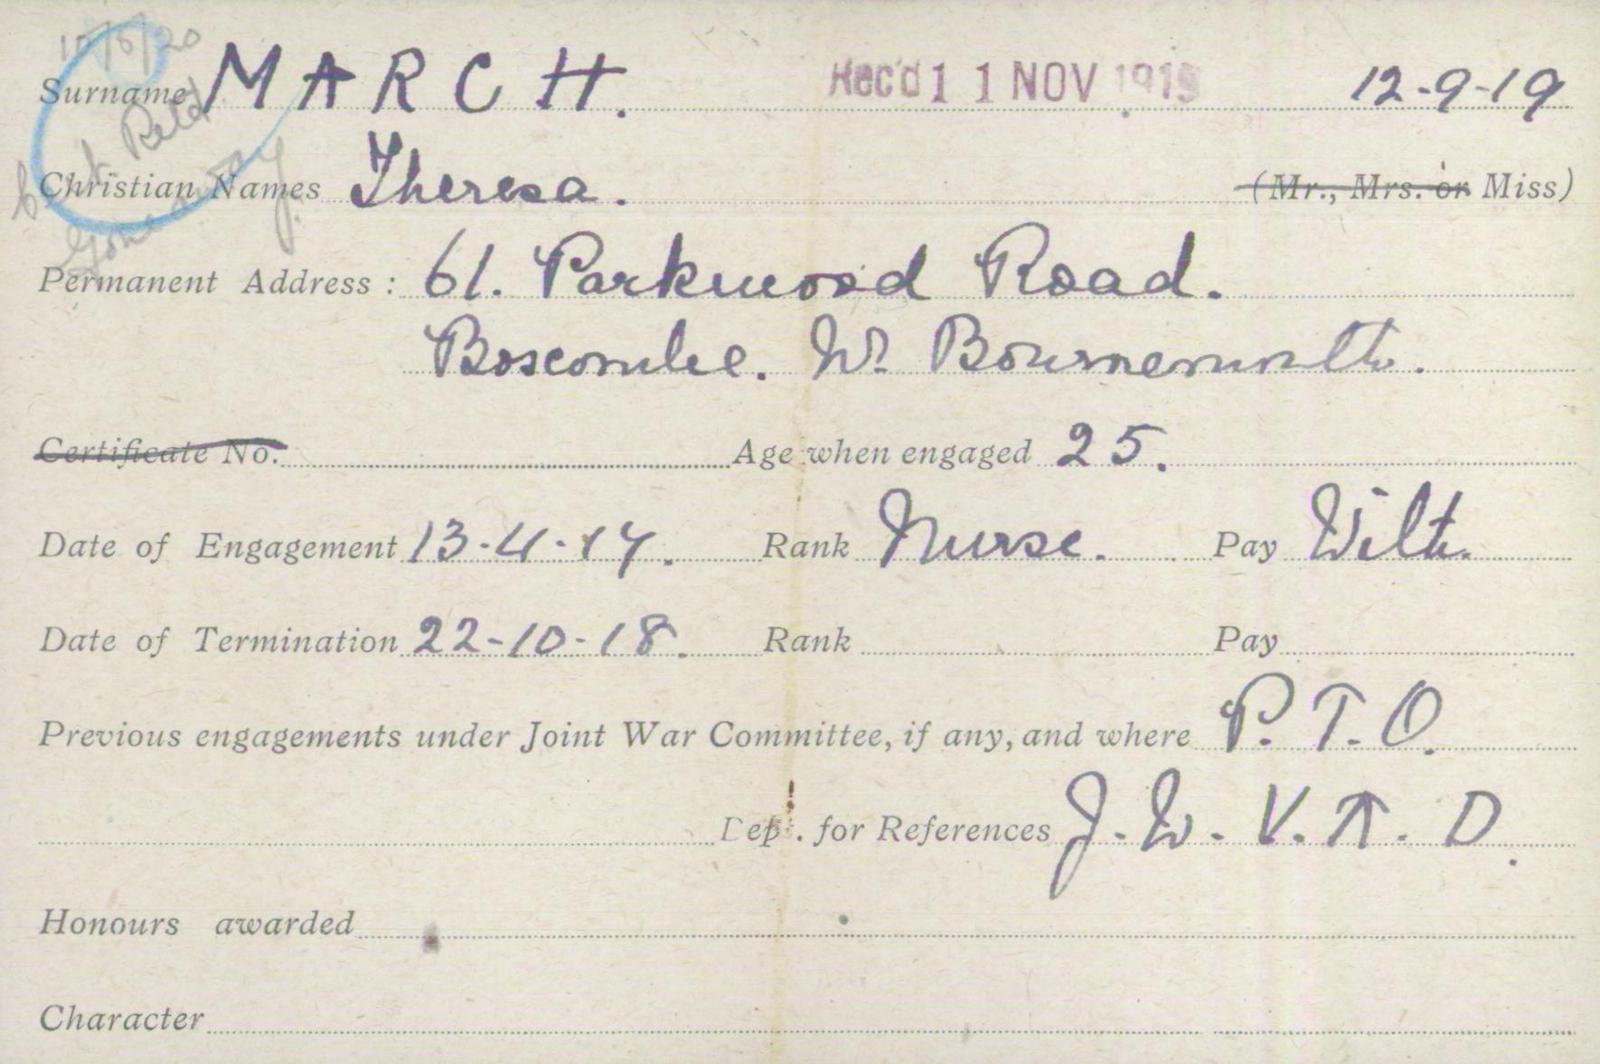 10/6/20
Surname MARCH. Rec'd 11 NOV 1919 12-9-19
Cert Retd
Christian Names Theresa. (Mr., Mrs. or Miss)
Gone away
Permanent Address : 61. Parkwood Road.
Boscombe. W. Bournemouth.
Certificate No. Age when engaged 25.
Date of Engagement 13-4-17. Rank Nurse. Pay
Date of Termination 22-10-18. Rank Pay
Previous engagements under Joint War Committee, if any, and where P.T.O.
Dept. for References J.W.V.A.D.
Honours awarded
Character